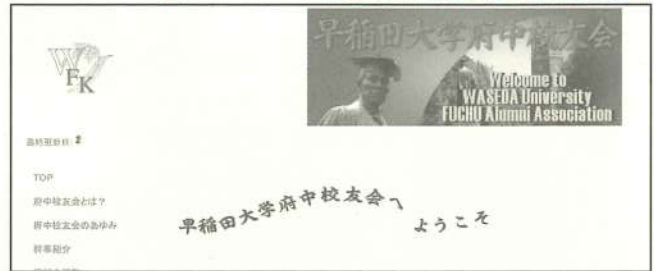 早稲田大学府中校友会
Welcome to
WASEDA University
FUCHU Alumni Association
WFK
最終更新日:
TOP
府中校友会とは?
府中校友会のあゆみ
幹事紹介
早稲田大学府中校友会へ ようこそ